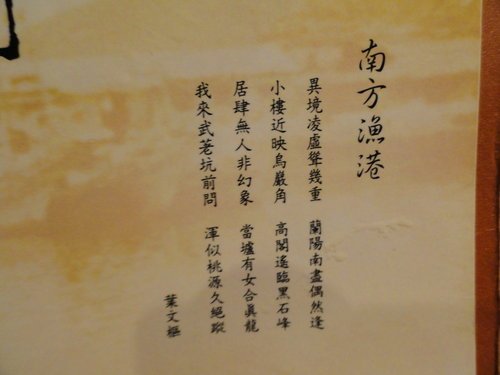 南方漁港
異境凌虛聳幾重 蘭陽南盡偶然逢
小樓近映烏巖角 高閣遙臨黑石峰
居肆無人非幻象 當壚有女合真龍
我來武荖坑前問 渾似桃源久絕蹤
葉文樞